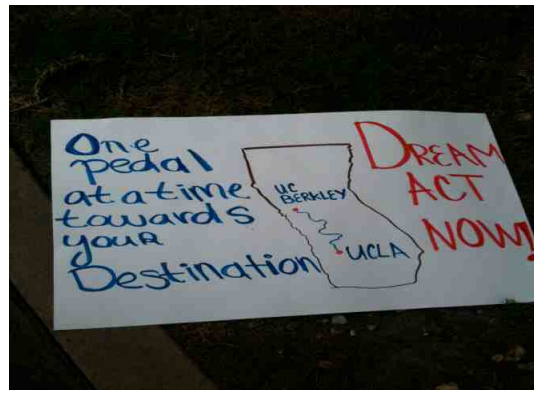 One
pedal
at a time
towards
your
Destination
UC
BERKLEY
UCLA
DREAM
ACT
NOW!